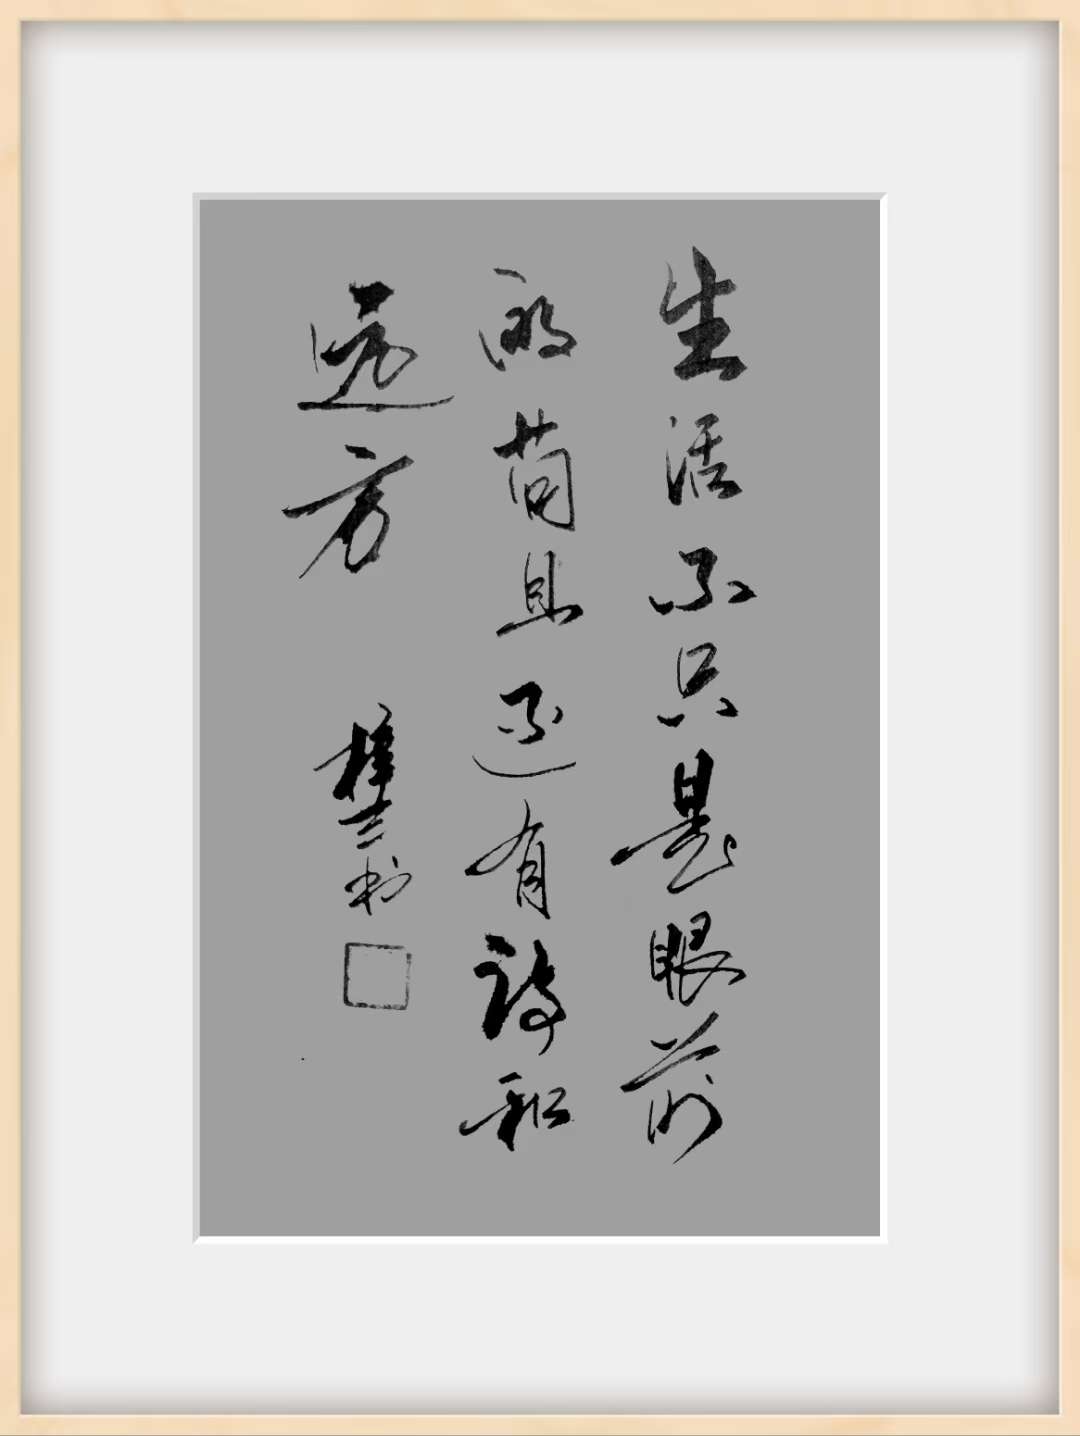 生活不只是眼前
的苟且还有诗和
远方